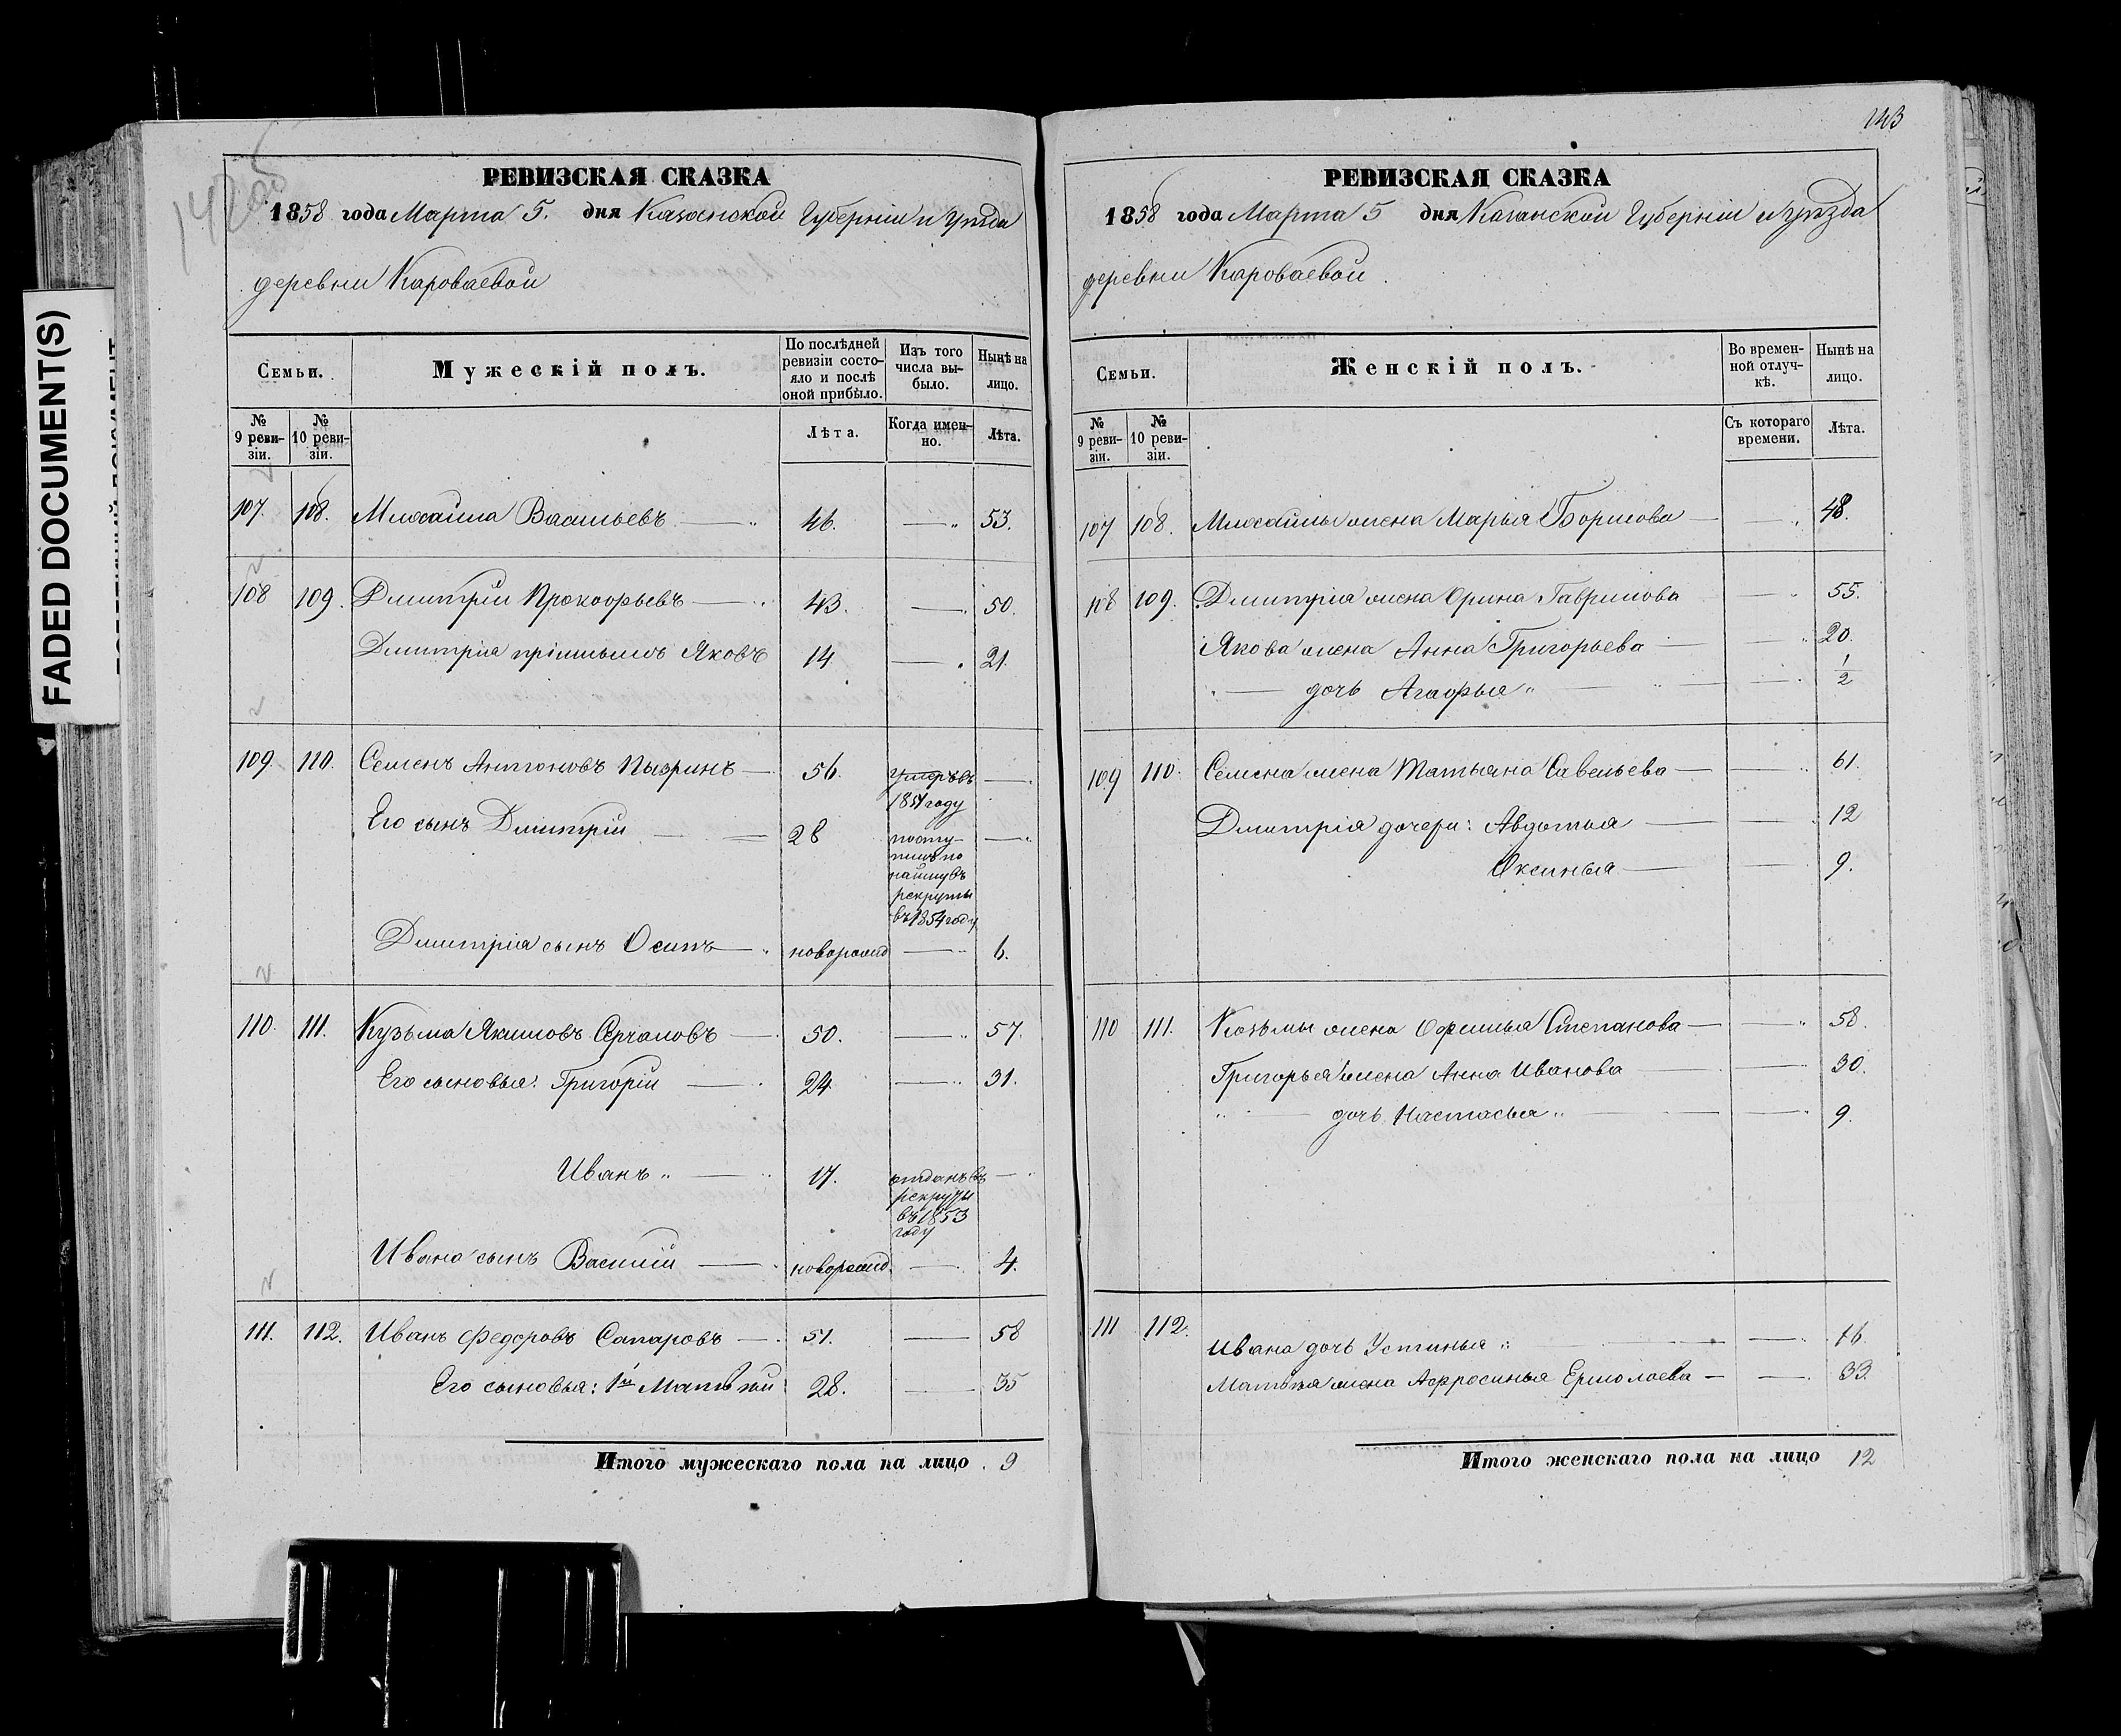 FADED DOCUMENT(S)
142об
РЕВИЗСКАЯ СКАЗКА
1858 года Марта 5. дня Казанской Губерніи и Уѣзда
деревни Короваевой
Семьи.
Мужескій полъ.
По послѣдней ревизіи состояло и послѣ оной прибыло.
Изъ того числа выбыло.
Нынѣ на лицо.
№ 9 ревизіи.
№ 10 ревизіи.
Лѣта.
Когда именно.
Лѣта.
107. 108. Михайла Васильевъ — 46. — 53.
108 109. Дмитрій Прокофьевъ — 43. — 50.
Дмитрія пріимышъ Яковъ 14 — 21
109. 110. Семенъ Антоновъ Пызринъ — 56. умеръ въ 1854 году —
Его сынъ Дмитрій — 28 поступилъ по найму въ рекруты въ 1854 году —
Дмитрія сынъ Осипъ — новорожд — 6.
110. 111. Кузьма Якимовъ — 50. — 57.
Его сыновья: Григорій — 24 — 31.
Иванъ — 17. отданъ въ рекруты въ 1853 году —
Ивана сынъ Василій — новорожд. — 4.
111. 112. Иванъ Федоровъ Сапаровъ — 51. — 58
Его сыновья: 1й Матвѣй 28. — 35
Итого мужескаго пола на лицо . 9
143
РЕВИЗСКАЯ СКАЗКА
1858 года Марта 5 дня Казанской Губерніи и уѣзда
деревни Короваевой.
Семьи.
Женскій полъ.
Во временной отлучкѣ.
Нынѣ на лицо.
№ 9 ревизіи.
№ 10 ревизіи.
Съ котораго времени.
Лѣта.
107 108. Михайлы жена Марья Борисова — 48.
108 109. Дмитрія жена Орина Гаврилова — 55.
Якова жена Анна Григорьева — 20.
— дочь Агафья — 1/2
109 110. Семена жена Татьяна Савельева — 61.
Дмитрія дочери: Авдотья — 12
Оксинья — 9.
110 111. Козьмы жена Офимья Степанова — 58.
Григорья жена Анна Иванова — 30.
— дочь Настасья — 9.
111 112. Ивана дочь Устинья — 16.
Матвѣя жена Афросинья Ермолаева — 33.
Итого женскаго пола на лицо 12